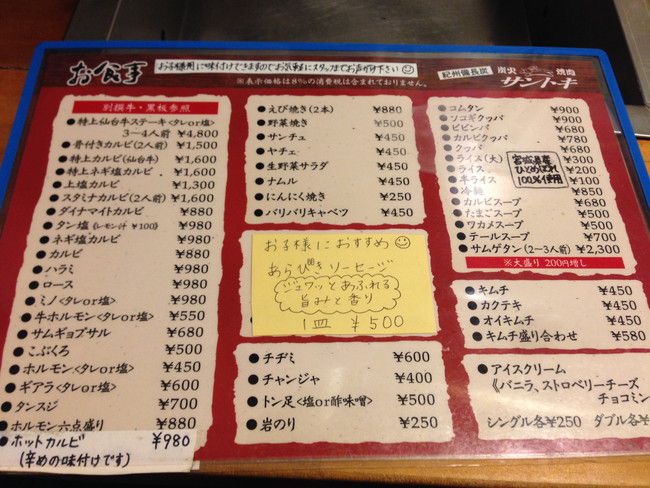 お食事
お子様用に味付けできますのでお気軽にスタッフまでお声がけ下さい
※表示価格は8%の消費税は含まれておりません。
紀州備長炭 炭火 焼肉
サントキ
別撰牛・黒板参照
●特上仙台牛ステーキ<タレor塩>
3〜4人前 ¥4,800
●骨付きカルビ(2人前) ¥1,500
●特上カルビ(仙台牛) ¥1,600
●特上ネギ塩カルビ ¥1,600
●上塩カルビ ¥1,300
●スタミナカルビ(2人前) ¥1,600
●ダイナマイトカルビ ¥880
●タン塩(レモン汁 ¥100) ¥980
●ネギ塩カルビ ¥980
●カルビ ¥880
●ハラミ ¥980
●ロース ¥980
●ミノ<タレor塩> ¥980
●牛ホルモン<タレor塩> ¥550
●サムギョプサル ¥680
●こぶくろ ¥500
●ホルモン<タレor塩> ¥450
●ギアラ<タレor塩> ¥600
●タンスジ ¥700
●ホルモン六点盛り ¥880
●ホットカルビ ¥980
(辛めの味付けです)
●えび焼き(2本) ¥880
●野菜焼き ¥500
●サンチュ ¥450
●ヤチェ ¥450
●生野菜サラダ ¥450
●ナムル ¥450
●にんにく焼き ¥250
●バリバリキャベツ ¥450
お子様におすすめ
あらびきソーセージ
ジュワッとあふれる
旨みと香り
1皿 ¥500
●チヂミ ¥600
●チャンジャ ¥400
●トン足<塩or酢味噌> ¥500
●岩のり ¥250
●コムタン ¥900
●ソコギクッパ ¥900
●ビビンバ ¥680
●カルビクッパ ¥780
●クッパ ¥680
●ライス(大) ¥300
●ライス ¥200
●半ライス ¥100
宮城県産
ひとめぼれ
100%使用
●冷麺 ¥850
●カルビスープ ¥680
●たまごスープ ¥500
●ワカメスープ ¥500
●テールスープ ¥700
●サムゲタン(2〜3人前) ¥2,300
※大盛り 200円増し
●キムチ ¥450
●カクテキ ¥450
●オイキムチ ¥450
●キムチ盛り合わせ ¥580
●アイスクリーム
《バニラ、ストロベリーチーズ
チョコミン
シングル各¥250 ダブル各¥